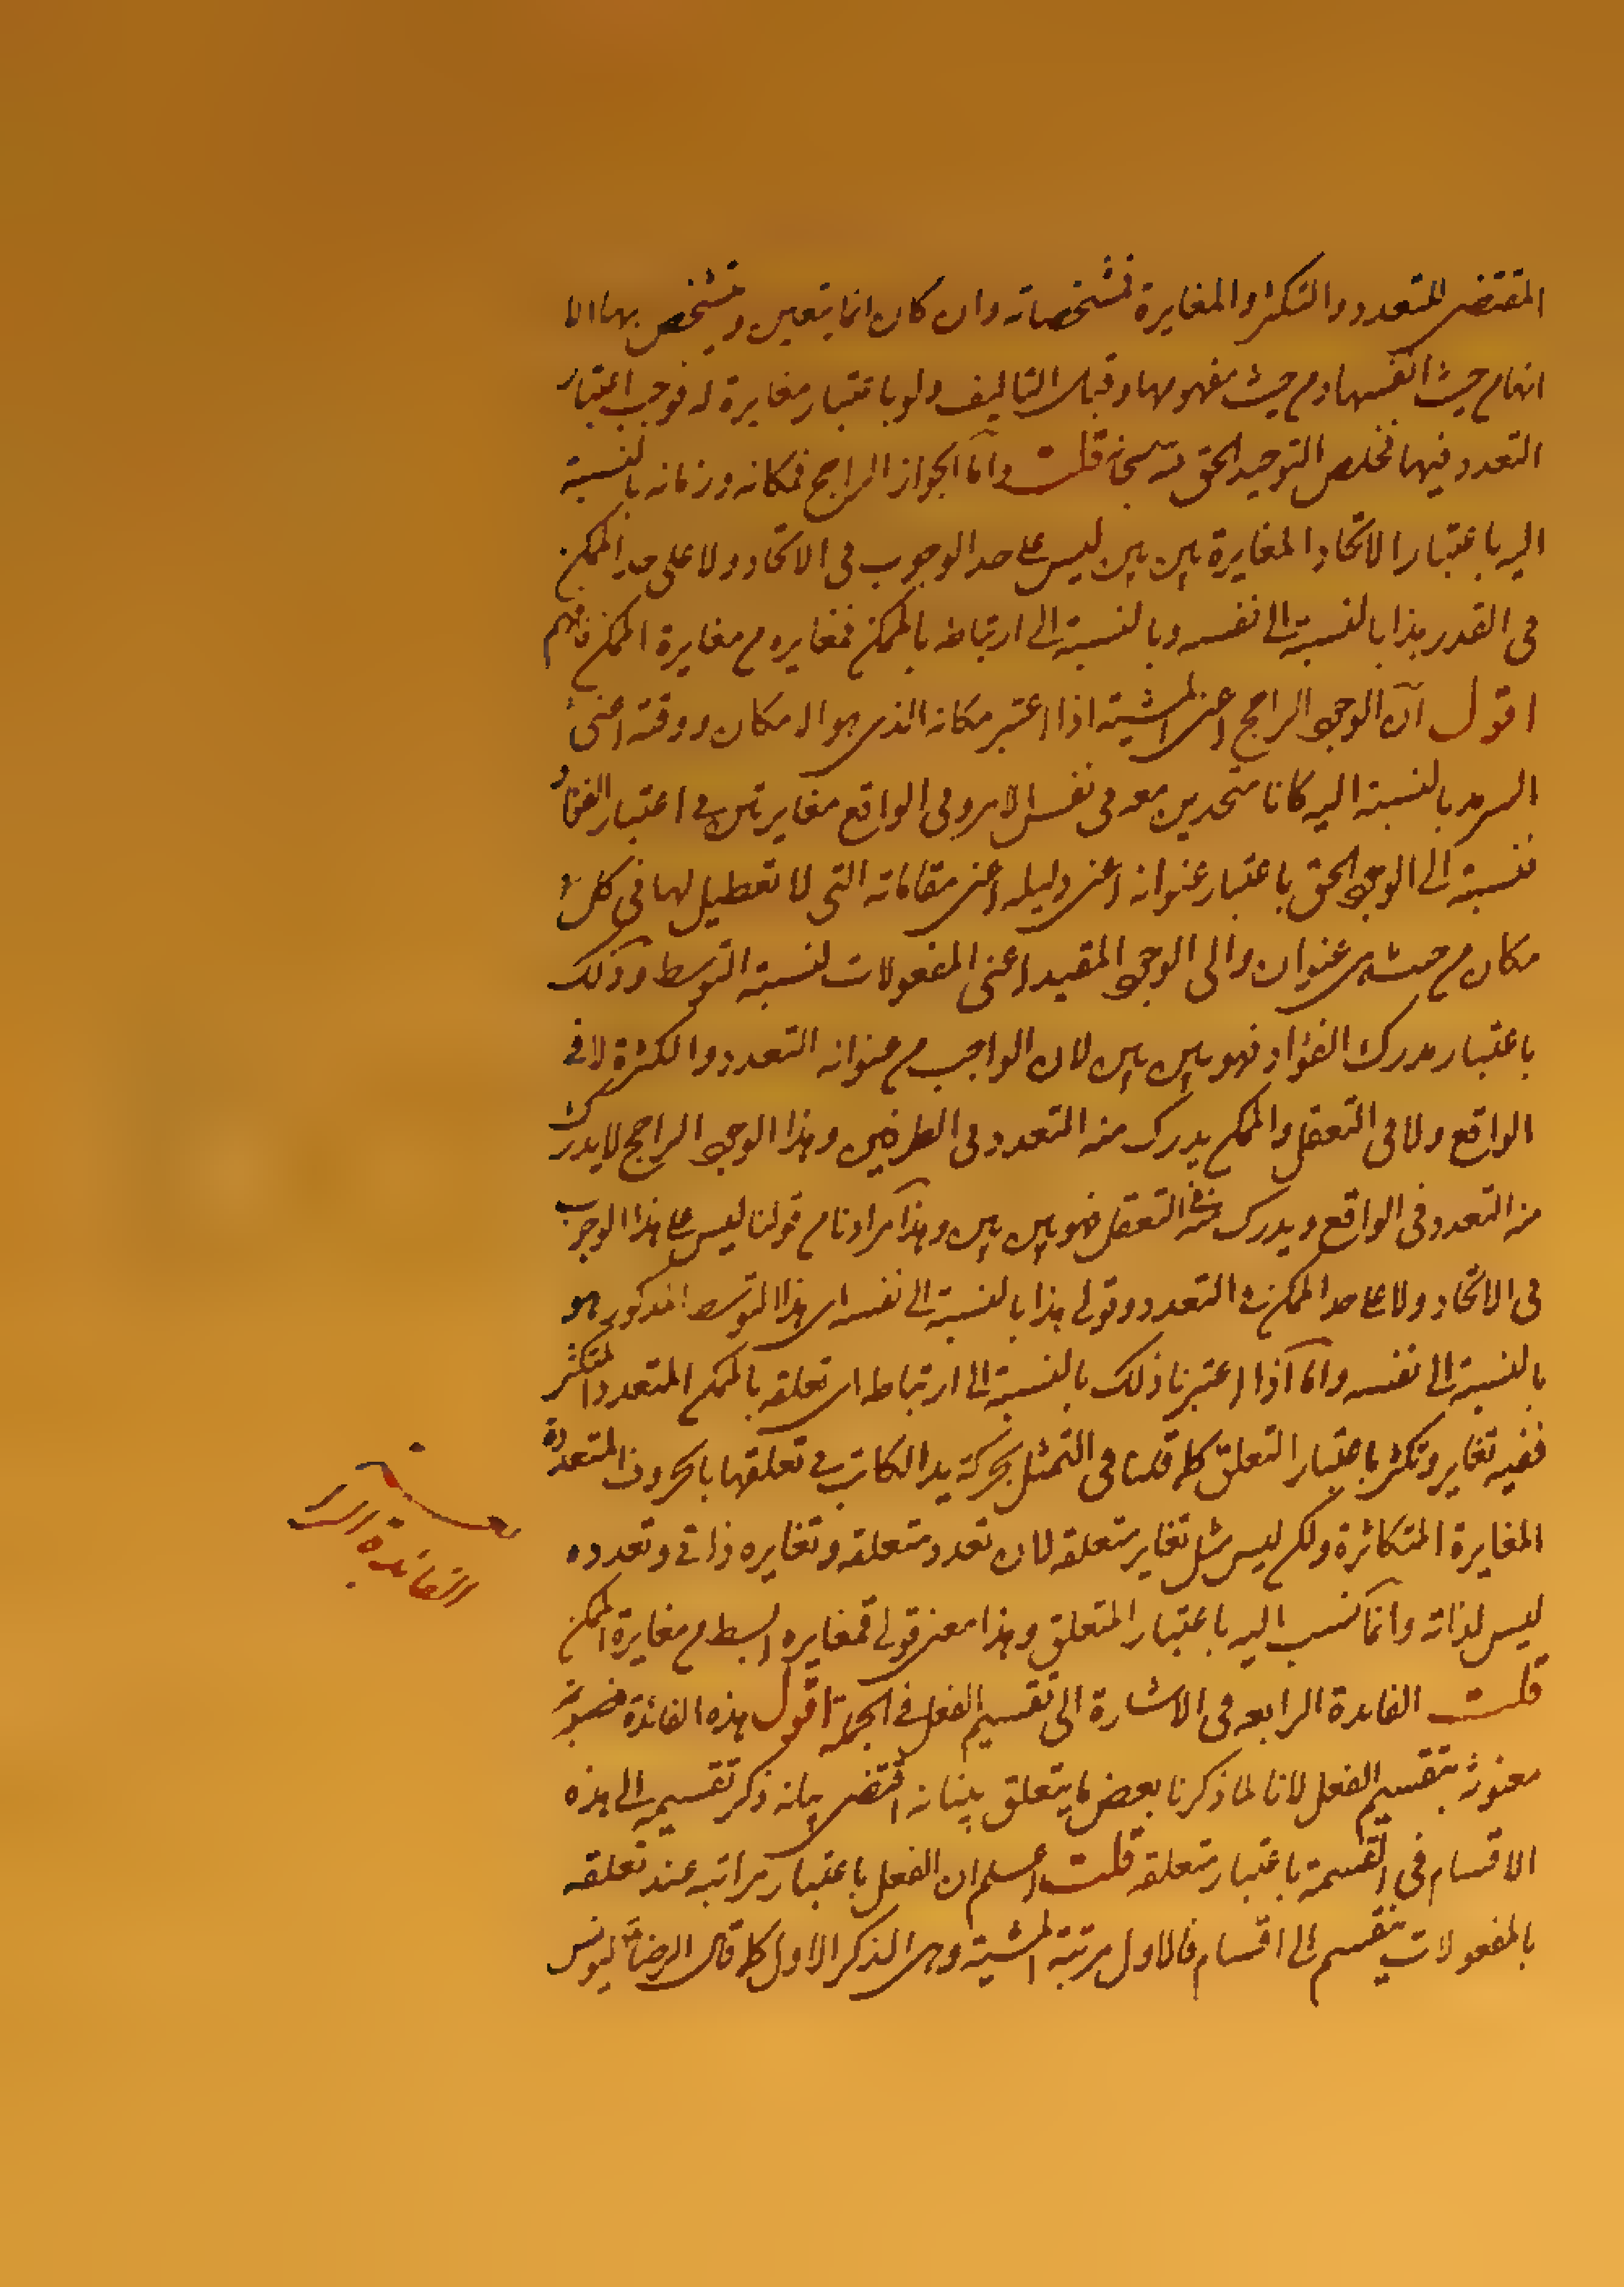 المقتضی للتعدد والتکثر والمغایرة فمشخصاته وان کان انما یتعین ویتشخص بها الا
انها من حیث انفسها ومن حیث مفهومها وقبلت التالیف ولو باعتبار مغایرة له فوجب اعتبار
التعدد فیها فخلص التوحید الحق لله سبحانه قلت واما الجواز الراجح فمکانه وزمانه بالنسبة
الیه باعتبار الاتحاد والمغایرة بین بین لیس علی حد الوجوب فی الاتحاد ولا علی حد الممکن
فی القدر هذا بالنسبة الی نفسه وبالنسبة الی ارتباطه بالممکن فمغایره من مغایرة الممکن فافهم
اقول ان الوجود الراجح اعنی المشیة اذا اعتبر مکانه الذی هو الامکان ووقته اعنی
السرمد بالنسبة الیه کانا متحدین معه فی نفس الامر وفی الواقع مغایرتین فی اعتبار الفؤاد
نسبة الی الوجود الحق باعتبار عنوانه اعنی دلیله اعنی مقاماته التی لا تعطیل لها فی کل
مکان من حیث هی عنوان والی الوجود المقید اعنی المفعولات لنسبة التوسط وذلک
باعتبار مدرک الفؤاد فهو بین بین لان الواجب من عنوانه التعدد والکثرة لا فی
الواقع ولا فی التعقل والممکن یدرک منه التعدد فی الطرفین وهذا الوجود الراجح لا یدرک
منه التعدد فی الواقع ویدرک منه فی التعقل فهو بین بین وهذا مرادنا من قولنا لیس علی هذا الوجوب
فی الاتحاد ولا علی حد الممکن فی التعدد وقولی هذا بالنسبة الی نفسه ای هذا التوسط المذکور هو
بالنسبة الی نفسه واما اذا اعتبرنا ذلک بالنسبة الی ارتباطه ای تعلقه بالممکن المتعدد المتکثر
ففیه تغایر وتکثر باعتبار التعلق کما قلنا فی التمثیل بحرکة ید الکاتب فی تعلقها بالحروف المتعددة
المغایرة المتکاثرة ولکن لیس مثل تغایر متعلقه لان تعدد متعلقه وتغایره ذاتی وتعدده
لیس لذاته وانما نسب الیه باعتبار المتعلق وهذا معنی قولی فمغایره ابسط من مغایرة الممکن
قلت الفائدة الرابعه فی الاشارة الی تقسیم الفعل فی الجملة اقول هذه الفائدة
معنونة بتقسیم الفعل لانا لما ذکرنا بعض ما یتعلق ببیانه اقتضی بیانه ذکر تقسیمه الی هذه
الاقسام فی القسمة باعتبار متعلقه قلت اعلم ان الفعل باعتبار مراتبه عند تعلقه
بالمفعولات ینقسم الی اقسام فالاول مرتبة المشیة وهی الذکر الاول کما قال الرضا لیونس
الفائدة